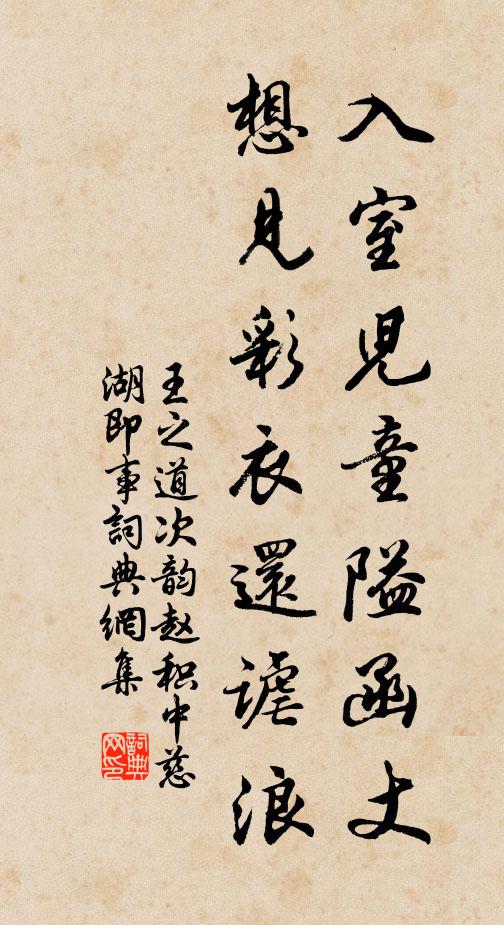 入室兒童隘函丈
想見彩衣還謔浪
王之道次韵赵积中慈
湖即事詞典網集
詞典
网印